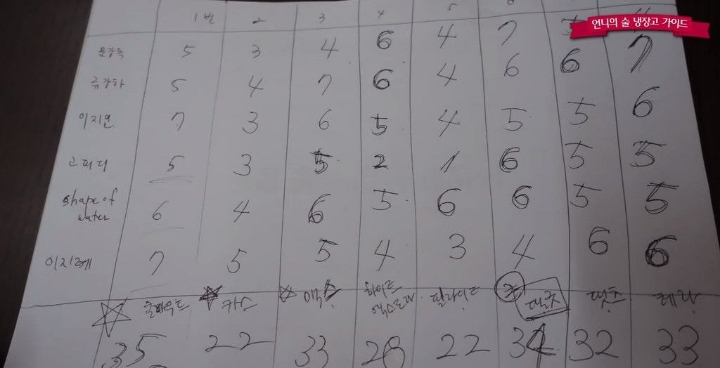 언니의 술 냉장고 가이드
1번 2 3 4 5 6
5 3 4 6 4 7 7
5 4 7 6 4 6 6
이지연 7 3 6 5 4 5 5 6
고피디 5 3 5 2 1 6 5 5
shape of water 6 4 6 5 6 6 5 5
7 5 5 4 3 4 6 6
올패우드 카스 맥스 하이트 엑스트라 필라이트 테라
35 22 33 28 22 34 32 33